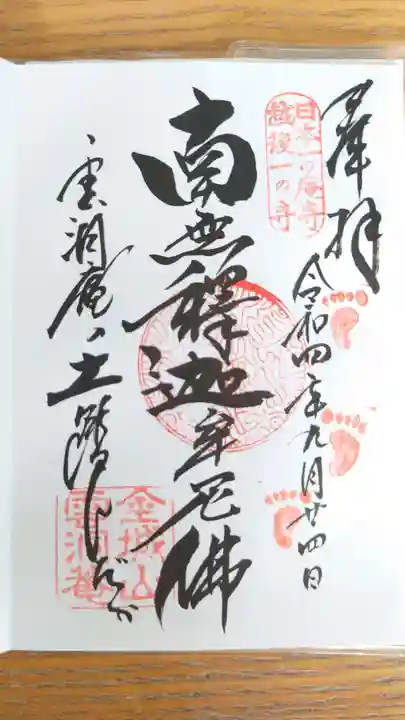 奉拝
日本一の庵寺
越後一の寺
令和四年九月廿四日
南無釋迦牟尼佛
雲洞庵ノ土踏んだか
金城山
雲洞庵